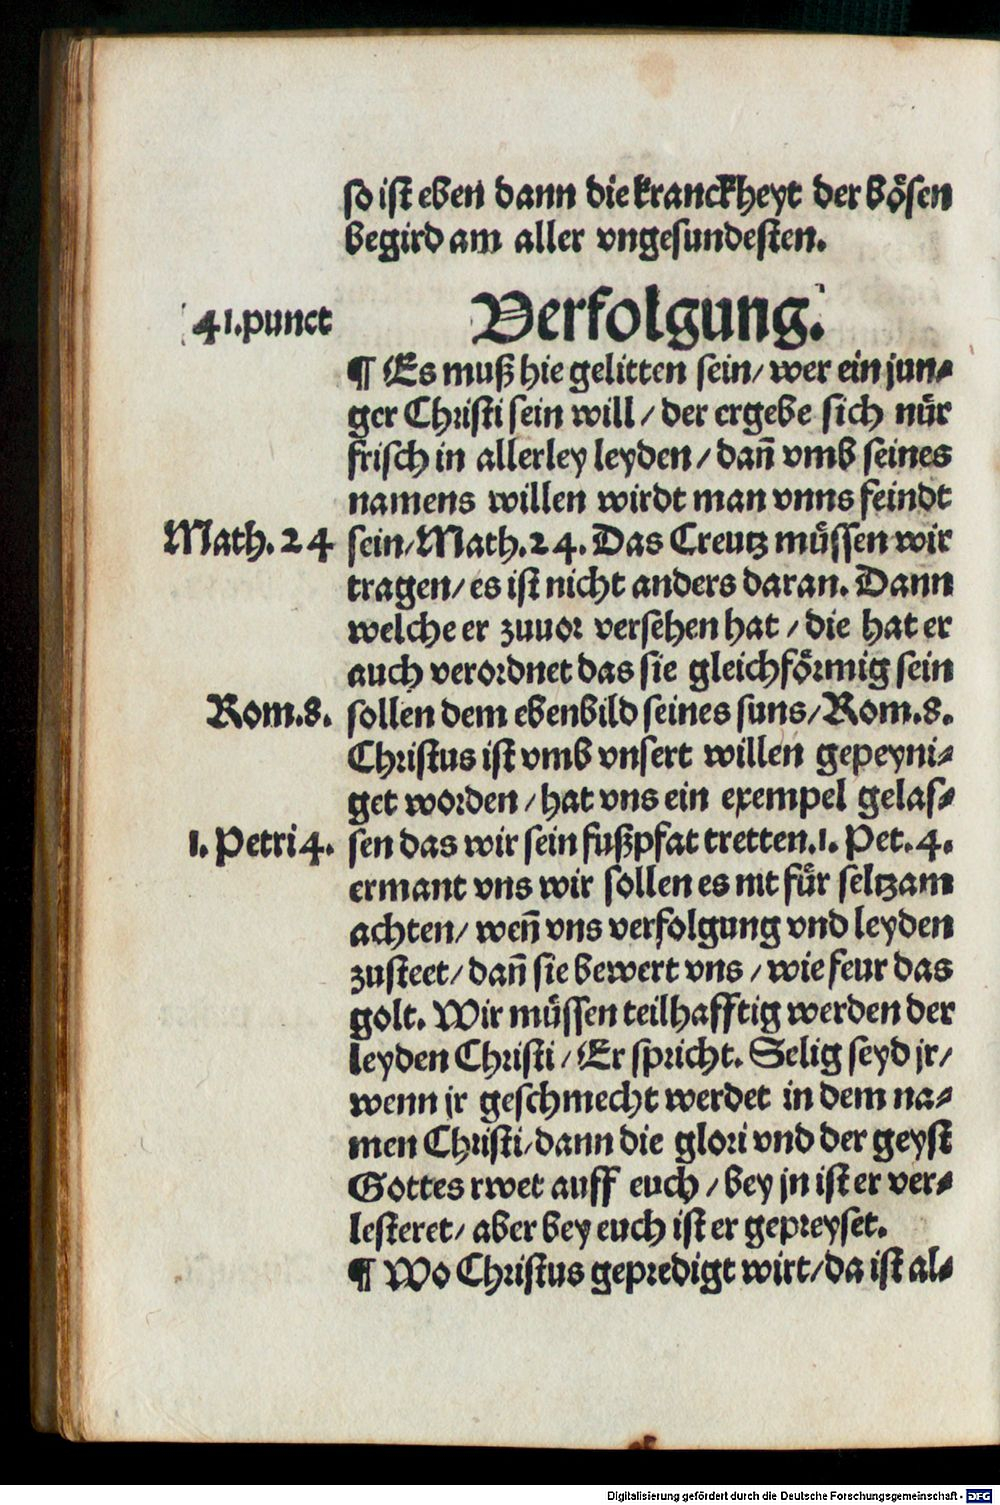 so ist eben dann die kranckheyt der boͤsen
begird am aller vngesundesten.
41.punct
Verfolgung.
¶ Es muß hie gelitten sein/ wer ein jun⸗
ger Christi sein will / der ergebe sich nuͤr
frisch in allerley leyden / dañ vmb seines
namens willen wirdt man vnns feindt
Math. 24
sein/Math.24. Das Creutz muͤssen wir
tragen/ es ist nicht anders daran. Dann
welche er zuuor versehen hat / die hat er
auch verordnet das sie gleichfoͤrmig sein
Rom.8.
sollen dem ebenbild seines suns/Rom.8.
Christus ist vmb vnsert willen gepeyni⸗
get worden / hat vns ein exempel gelas⸗
1. Petri 4.
sen das wir sein fußpfat tretten.1. Pet.4.
ermant vns wir sollen es nit fuͤr seltzam
achten/ weñ vns verfolgung vnd leyden
zusteet/ dañ sie bewert vns / wie feur das
golt. Wir muͤssen teilhafftig werden der
leyden Christi / Er spricht. Selig seyd jr/
wenn jr geschmecht werdet in dem na⸗
men Christi/dann die glori vnd der geyst
Gottes rwet auff euch / bey jn ist er ver⸗
lesteret/ aber bey euch ist er gepreyset.
¶ Wo Christus gepredigt wirt/da ist al⸗
Digitalisierung gefördert durch die Deutsche Forschungsgemeinschaft - DFG